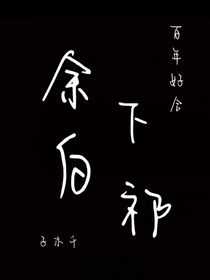 百年好合
下祁
余白
子木千